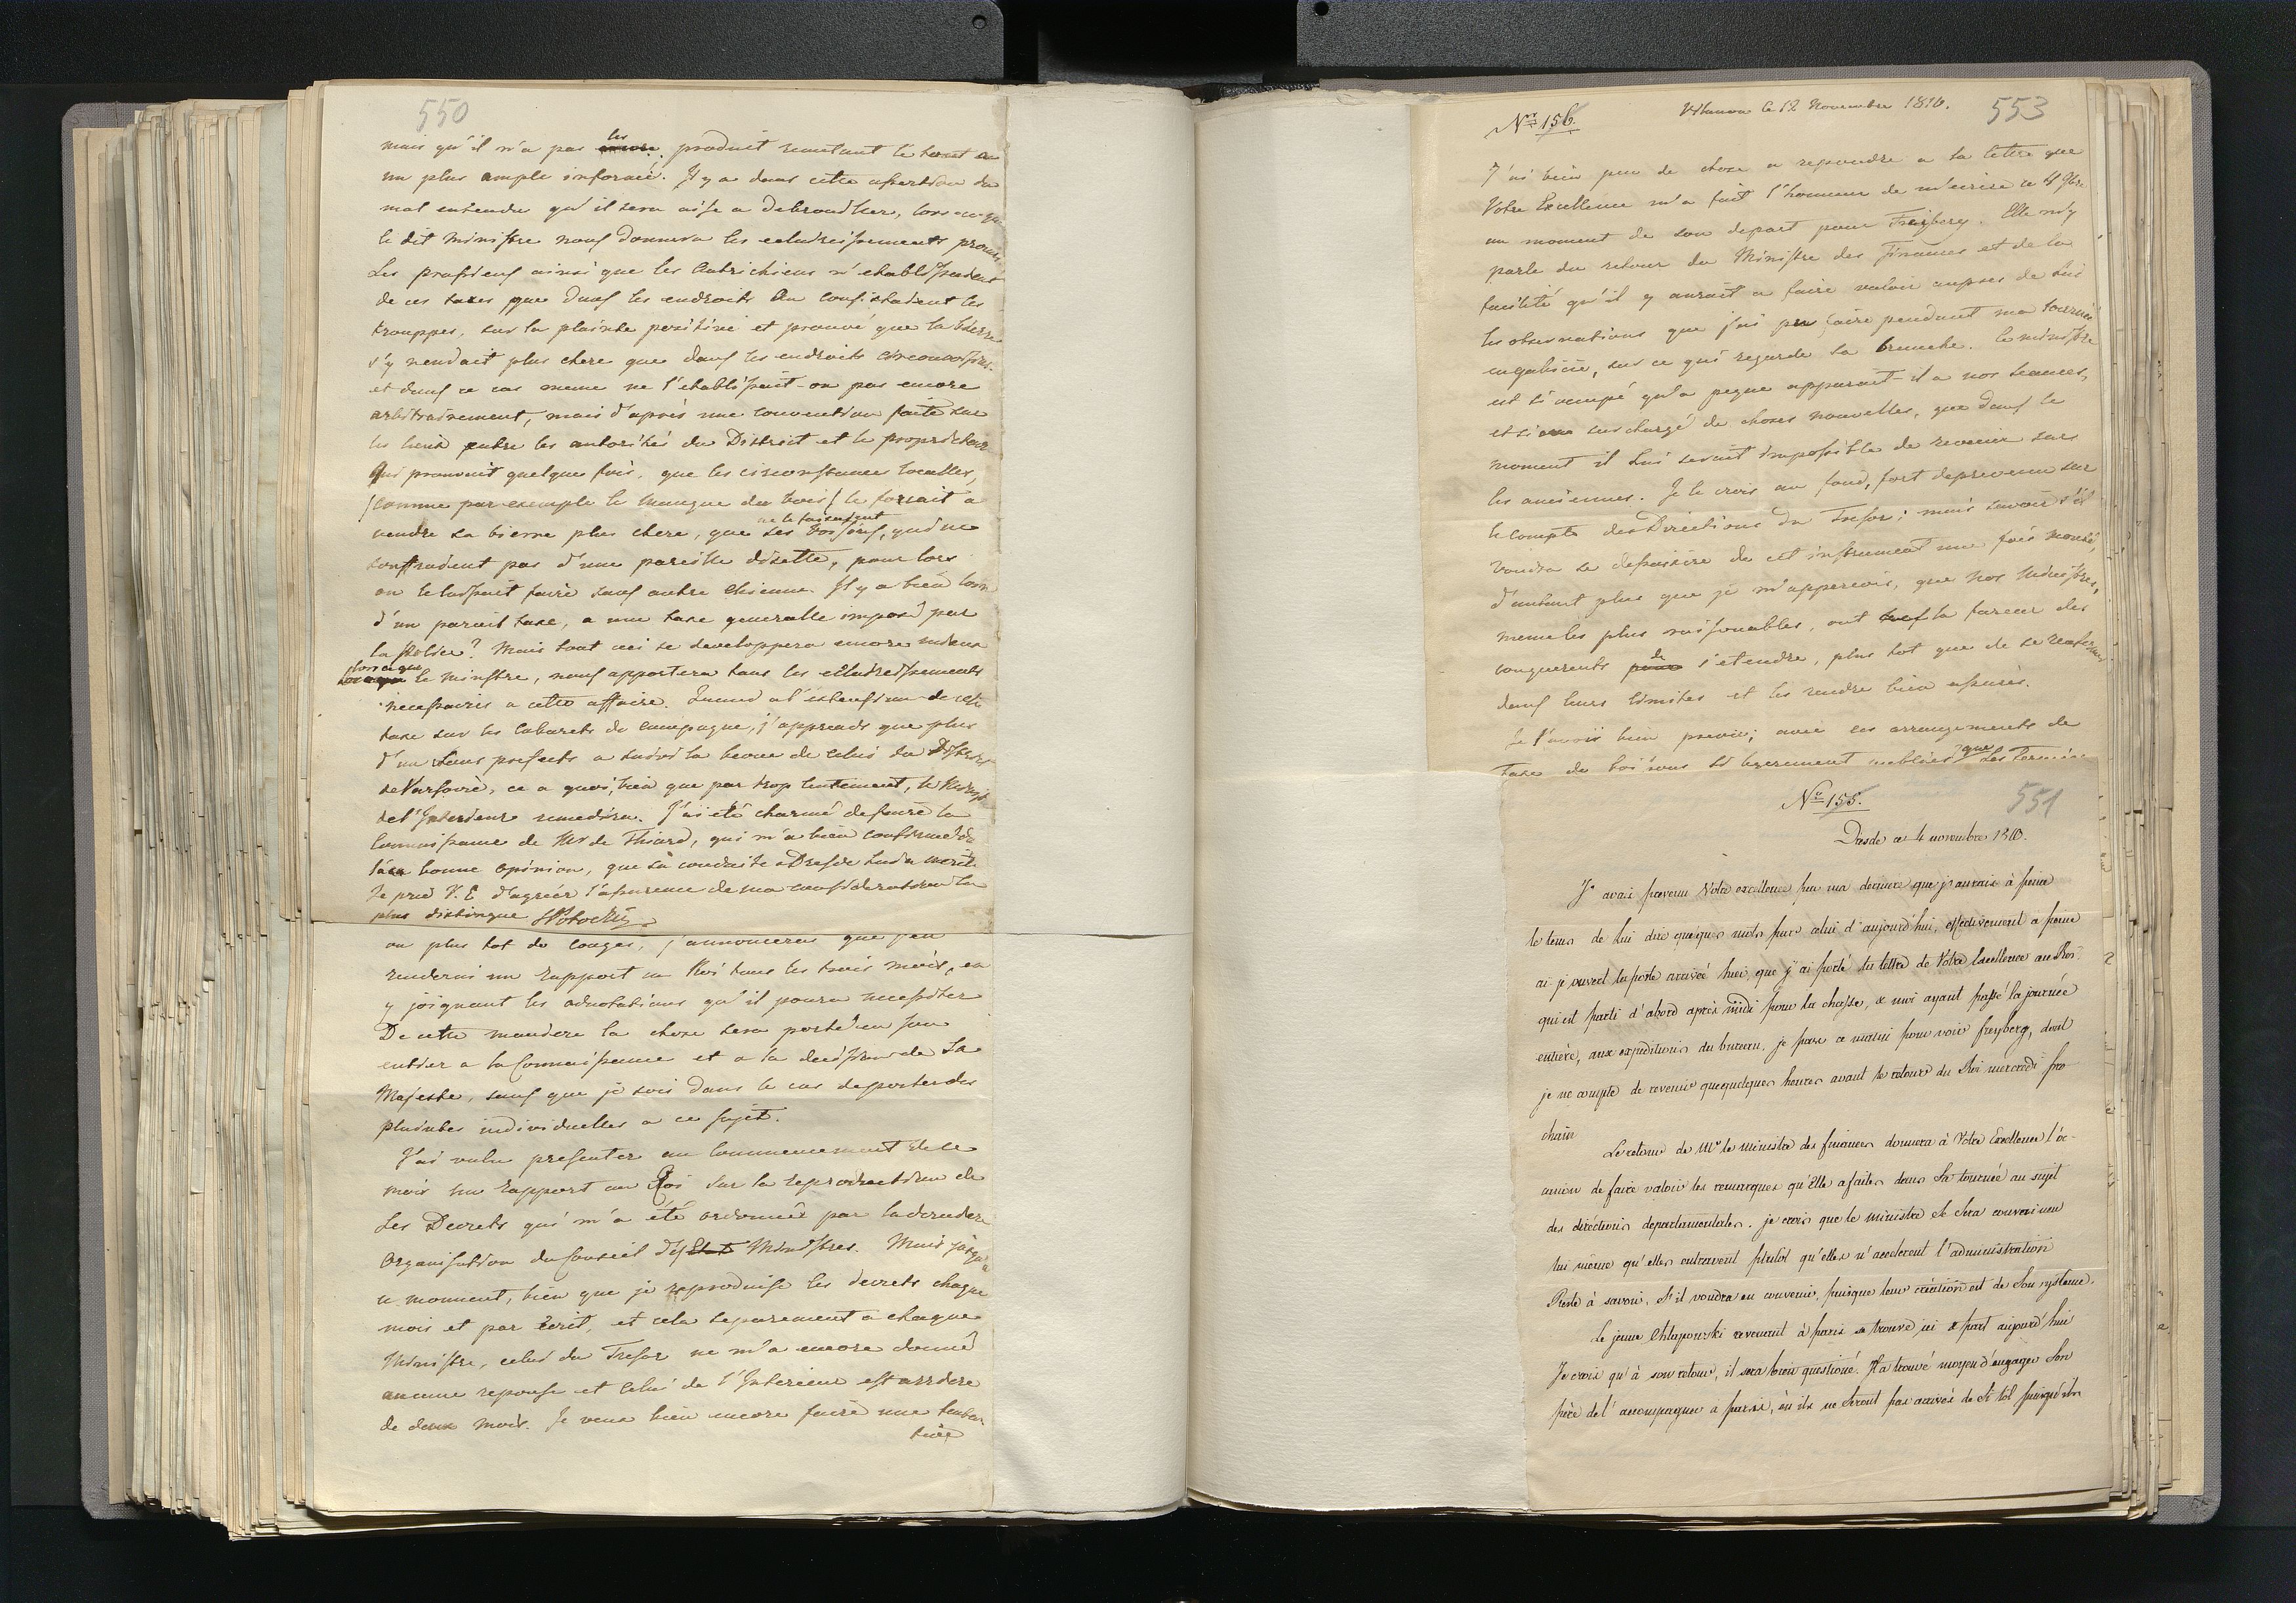 550
mais qu'il n'a pas les produit remettant le tout a
un plus ample informé. Il y a dans cette assertion du
mal entendu qu'il sera aisé a debrouiller, lorsque
le dit Ministre nous donnera les eclaircissements promis
Les prussiens ainsi que les Autrichiens n'etablissaient
de ces taxes que dans les endroits ou consistaient les
trouppes, sur la plainte positive et prouvé que la bierre
s'y vendait plus chere que dans les endroits circonvoisins
et dans ce cas meme ne l'etablissait-on pas encore
arbitrairement, mais d'après une convention faite sur
les lieux entre les autorités du District et le proprietaire
Qui prouvait quelque fois, que les circonstances locales,
(comme par exemple le manque du bois) le forcait a
vendre sa bierre plus chere, que ses voisins, qui ne
ne le faisaient
souffraient pas d'une pareille disette, pour lors
on le laissait faire sans autre chicane. Il y a bien loin
d'un pareil taxe, a une taxe generalle imposé par
la police? Mais tout ceci se developpera encore mieux
lorsque le ministre, nous apportera tous les eclaircissements
necessaires a cette affaire. Quand a l'extension de cette
taxe sur les cabarets de campagne, j'apprends que plus
d'un sous prefects a suivi la bevue de celui du District
de Varsovie, ce a quoi, bien que par trop lentement, le Ministre
de l'Interieur remediera. J'ai été charmé de faire la
connaissance de Mr de Thiard, qui m'a bien confirmé
la bonne opinion, que sa conduite a Dresde lui a merité
Je prie V. E d'agréer l'assurence de ma consideration la
plus distingue SPotocki
ou plus tot de congés, j'annoncerai que j'en
renderai un rapport au Roi tous les trois mois, en
y joignant les adnotations qu'il poura necessiter
De cette maniere la chose sera porté en son
entier a la Connaissance et a la decission de Sa
Majesté, sauf que je sois dans le cas de porter des
plaintes individuelles a ce sujet.
J'ai voulu presenter au commencement de ce
mois un rapport au Roi sur la reproduction de
Les Decrets qui m'a été ordonnée par la derniere
organisation du Conseil des Ministres. Mais jusqu'a
ce moment, bien que je reproduise les decrets chaque
mois et par écrit, et cela separement a chaque
Ministre, celui du Tresor ne m'a encore donné
aucune reponse et celui de l'Interieur est arriere
de deux mois. Je veux bien encore faire une tenta-
tive
Nro 156.
Vilanow le 12 Novembre 1810.
553
J'ai bien peu de chose a repondre a la lettre que
Votre Excellence m'a fait l'honneur de m'ecrire ce 4 9bre
au moment de son depart pour Freyberg. Elle m'y
parle du retour du Ministre des Finances et de la
facilité qu'il y aurait a faire valoir aupres de lui
les observations que j'ai pu faire pendant ma tournée
en galicie, sur ce qui regarde sa branche. Le ministre
est si occupé qu'a peine apparait-il a nos seances,
et si surchargé de choses nouvelles, que dans le
moment il lui serait impossible de revenir sur
les anciennes. Je le crois au fond, fort deprevenu sur
le compte des Directions du Tresor; mais savoir s'il
voudra se desaisire de cet instrument une fois monté,
d'autant plus que je m'apperçois, que nos Ministres,
meme les plus raisonnables, ont la fureur des
conquerents de s'etendre, plus tot que de se renfermer
dans leurs limites et les rendre bien assurés.
Je l'avois bien prevu; avec ces arrangements de
que
Nro 155.
551
Dresde ce 4 novembre 1810.
J'avais prevenu Votre excellence par ma derniere que j'aurais à peine
le tems de lui dire quelques mots par celui d'aujourd'hui, effectivement a peine
ai-je ouvert la poste arrivée hier, que j'ai porté la lettre de Votre Excellence au Roi
qui est parti d'abord après midi pour la chasse, & moi ayant passé la journée
entière, aux expeditions du bureau, je pars ce matin pour voir freyberg, dont
je ne compte de revenir que quelques heures avant le retour du Roi mercredi pro-
chain
Le retour de Mr le ministre des finances donnera à Votre Excellence l'oc-
casion de faire valoir les remarques qu'Elle a faites dans Sa tournée au sujet
des directions departamentales. je crois que le ministre se sera convaincu
lui même qu'elles entravent plutôt qu'elles n'accelerent l'administration
Reste à savoir, s'il voudra en convenir, puisque leur création est de Son systeme.
Le jeune Chlapowski revenant à paris se trouve ici & part aujourd'hui
Je crois qu'à son retour, il sera bien questioné. Il a trouvé moyen d'engager Son
père de l'accompagner a paris, où ils ne seront pas arrivés de si tôt puisqu'ils